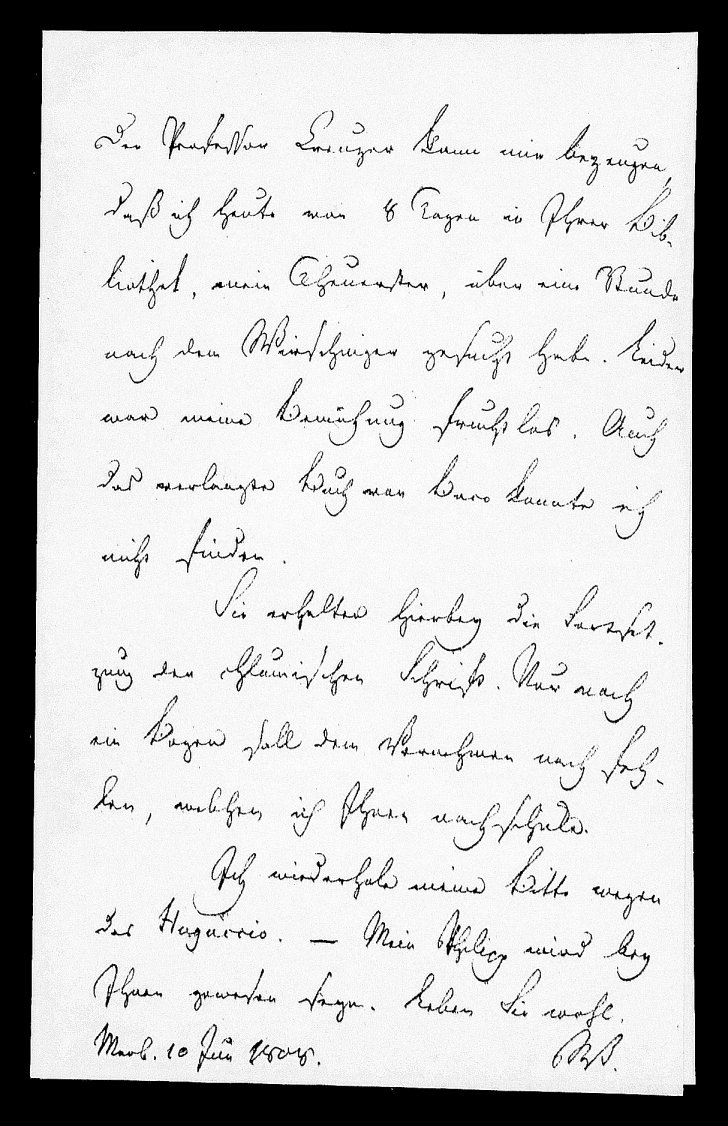 Der Professor Creuzer kann mir bezeugen,
daß ich heute vor 8 Tagen in Ihrer Bib-
liothek, mein Theuerster, über eine Stunde
nach dem Wirschinger gesucht habe. Leider
war meine Bemühung fruchtlos. Auch
das verlangte Buch von Baco konnte ich
nicht finden.
Sie erhalten hierbey die Fortset-
zung der Schrift. Nur noch
ein Bogen soll dem Vernehmen nach feh-
len, welchen ich Ihnen nachschicke.
Ich wiederhole meine Bitte wegen
des Huguccio. — Mein Philipp wird bey
Ihnen gewesen seyn. Leben Sie wohl.
Marb. 10 Jun 1808.